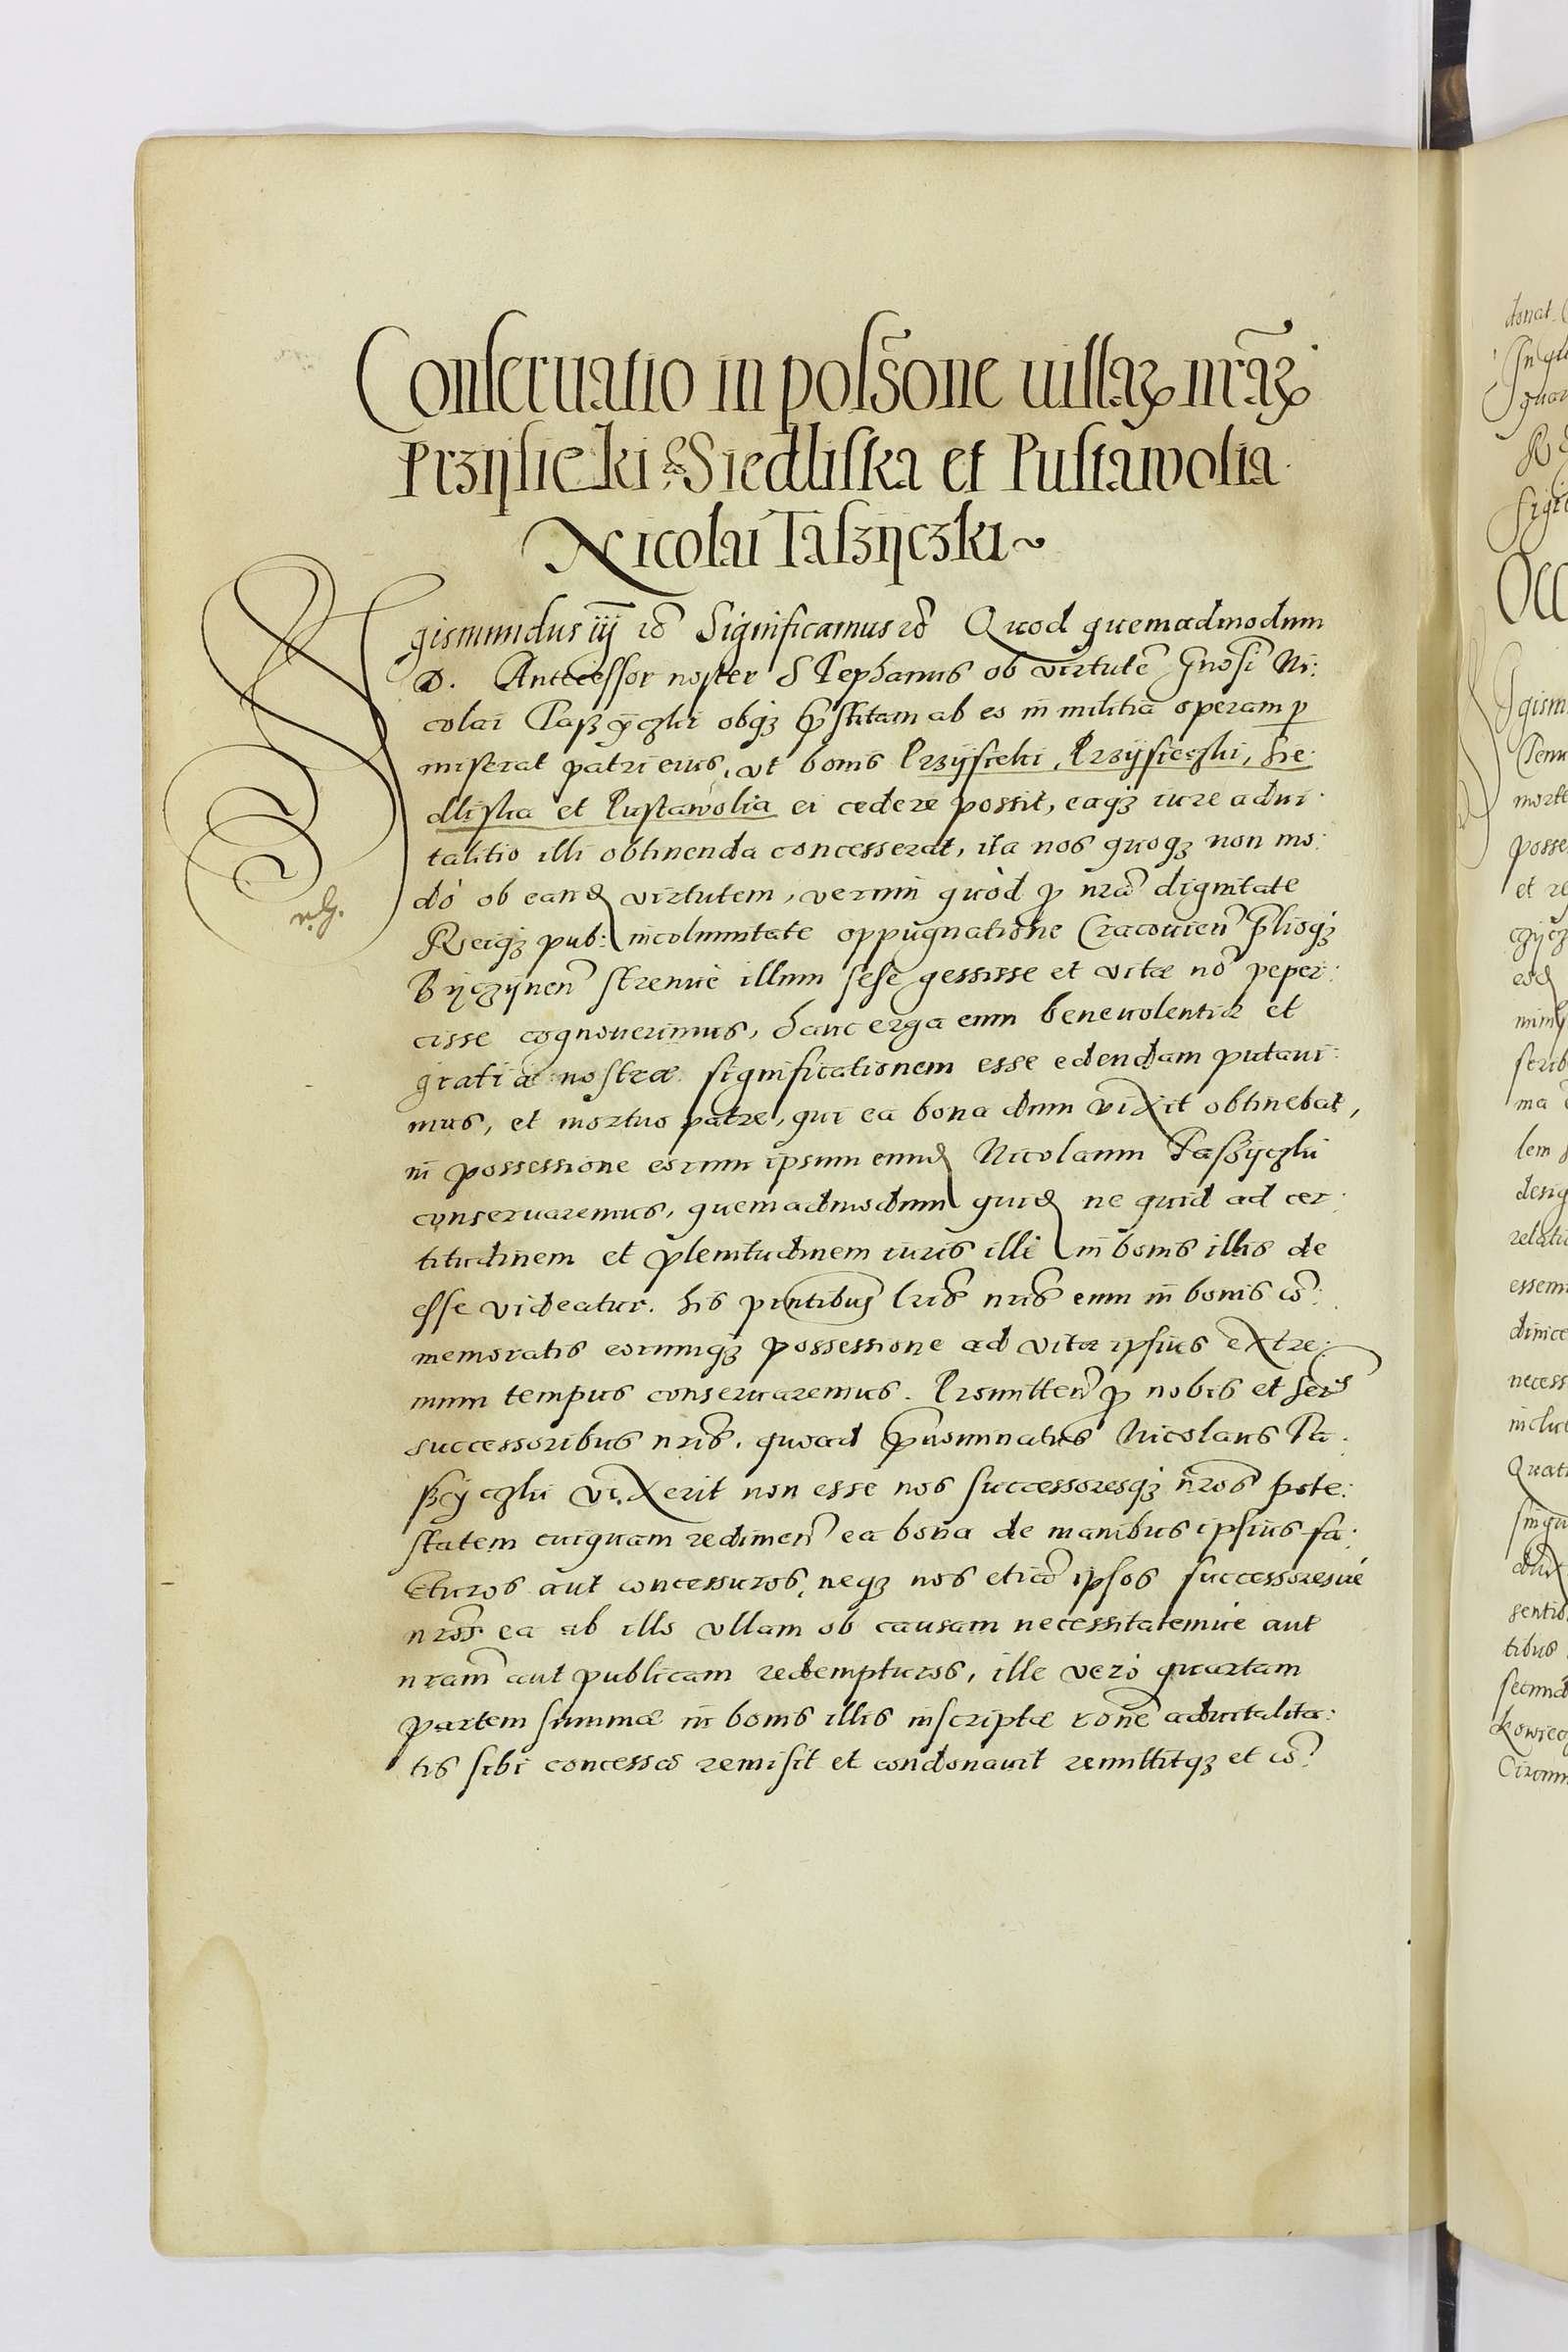 Conseruatio in possone uillaꝝ nrãꝝ
Przÿsieki & Siedliska et Pustawolia
Nicolai Taszÿczki ~
Sigismundus iij etc Significamus etc Quod quemadmodum
D. Antecessor noster Stephanus ob virtutẽ Gnosi Ni:
colai Taßÿczki obqꝫ p̃stitam ab eo in militia operam p
miserat patri eius, vt bonis Przÿsieki, Przÿsieczki, Sie:
dliska et Pustawolia ei cedere possit, eaqꝫ iure adui:
talitio illi obtinenda concesserat, ita nos quoqꝫ non mo:
dò ob eandẽ virtutem, verum quòd p nrã dignitate
Reiqꝫ pub: incolumitate oppugnatione Cracouien̄ p̃lioqꝫ
Bÿczÿnen̄ strenuè illum sese gessisse et vitæ nõ peper:
cisse cognouerimus, hanc erga eum beneuolentiæ et
gratiæ nostræ significationem esse edendam putaui:
mus, et mortuo patre, qui ea bona dum vixit obtinebat,
in possessione eorum ipsum eundẽ Nicolaum Taßÿczki
conseruaremus, quemadmodum quidẽ ne quid ad cer:
titudinem et plenitudinem iuris illi in bonis illis de
esse videatur. his pn̄tibus lris nris eum in bonis co:
memoratis eorumqꝫ possessione ad vitæ ipsius extre:
mum tempus conseruaremus. Promitten̄ p nobis et Sers
successoribus nris. quoad p̃nominatus Nicolaus Ta:
ßÿczki vixerit non esse nos successoresqꝫ nros pote:
statem cuiquam redimen̄ ea bona de manibus ipsius fa:
cturos aut concessuros, neqꝫ nos etiã ipsos successoresuè
nros ea ab illo vllam ob causam necessitatemuè aut
nram aut publicam redempturos, ille verò quartam
partem summæ in bonis illis inscriptæ rone aduitalita:
tis sibi concessæ remisit et condonauit remittitqꝫ et co: